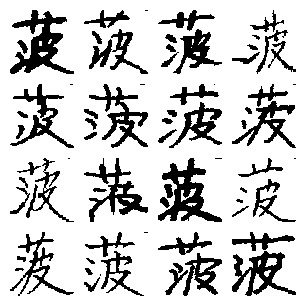 菠菠菠菠
菠菠菠菠
菠菠菠菠
菠菠菠菠